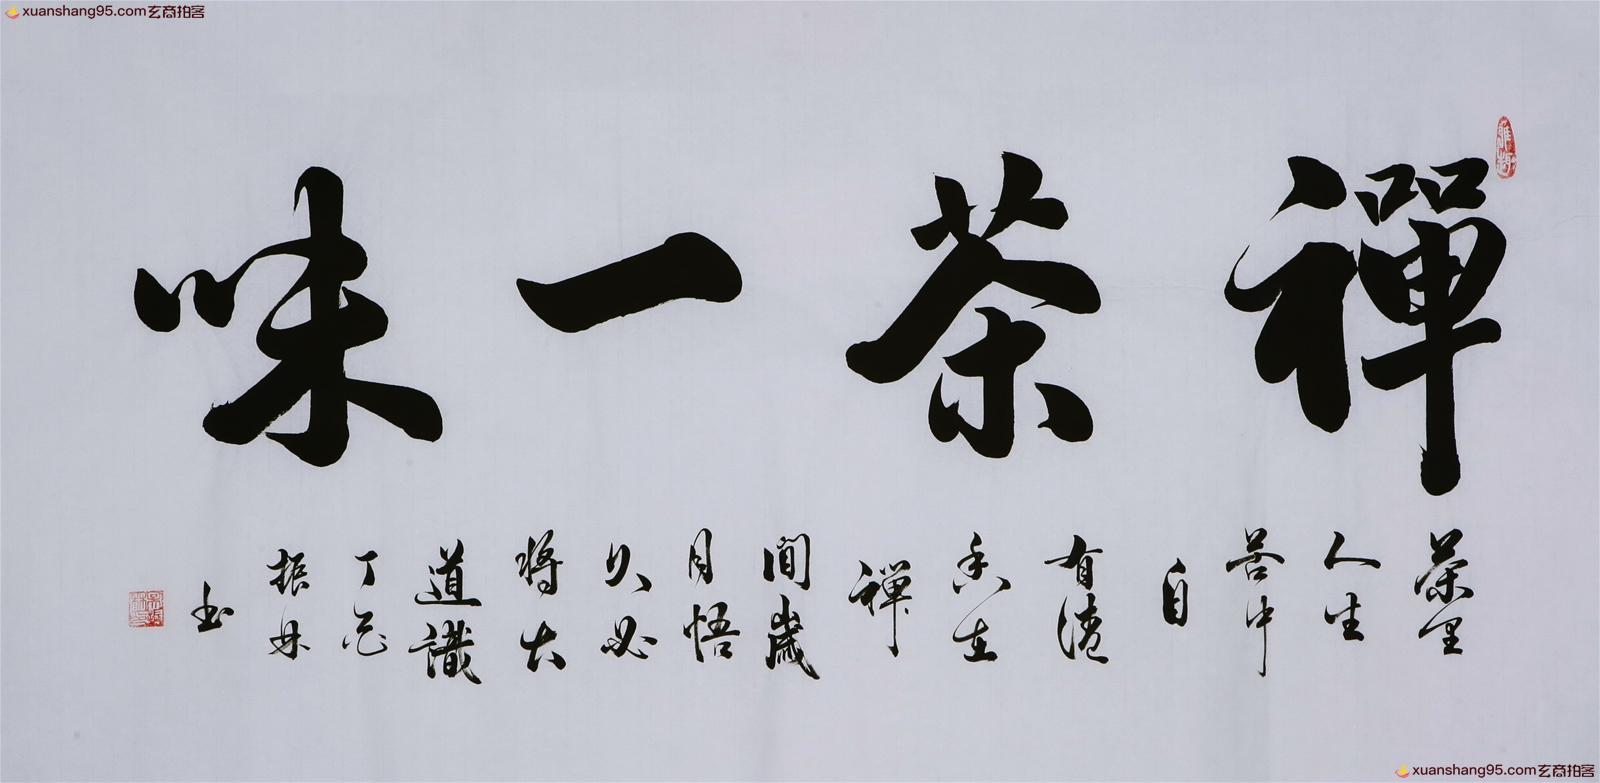 xuanshang95.com玄商拍客
禪茶一味
茶里
人生
苦中
自
有清
香在
禅
间歲
月悟
久必
将大
道識
丁亥
振
书
xuanshang95.com玄商拍客